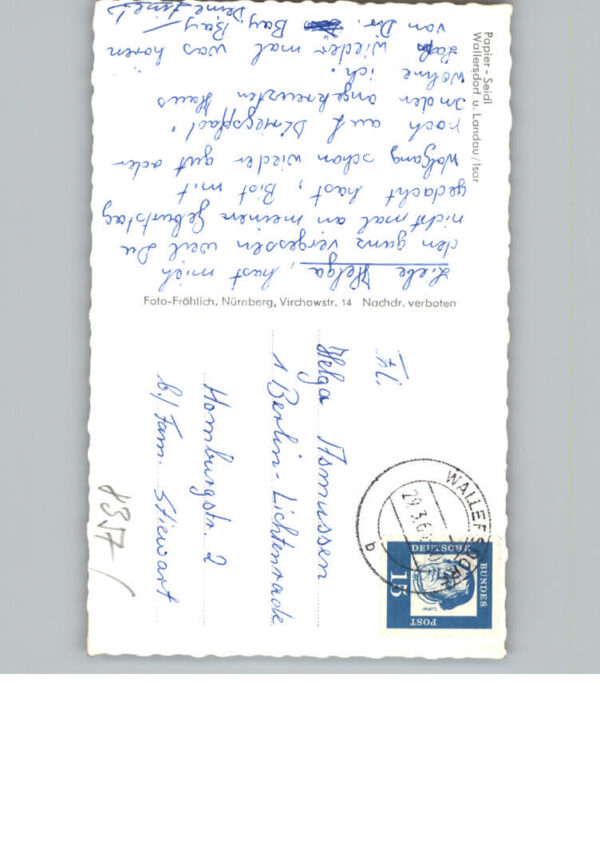 Papier - Seidl
Wallersdorf u. Landau/Isar
Liebe Helga, hast mich
den ganz vergessen weil Du
nicht mal an meinen Geburtstag
gedacht hast, Bist mit
Wolfgang schon wieder gut oder
noch auf Kriegspfad?
In den angekreuzten Haus
wohne ich.
Laß wieder mal was hören
von Dir. Bay, Bay
Deine
Foto-Fröhlich, Nürnberg, Virchowstr. 14 Nachdr. verboten
Frl.
Helga Asmussen
1 Berlin-Lichtenrade
Homburgstr. 2
b/ Fam. Stiewart
8357/
WALLERSDORF
29.3.6
a
DEUTSCHE
BUNDES
POST
15
Luther